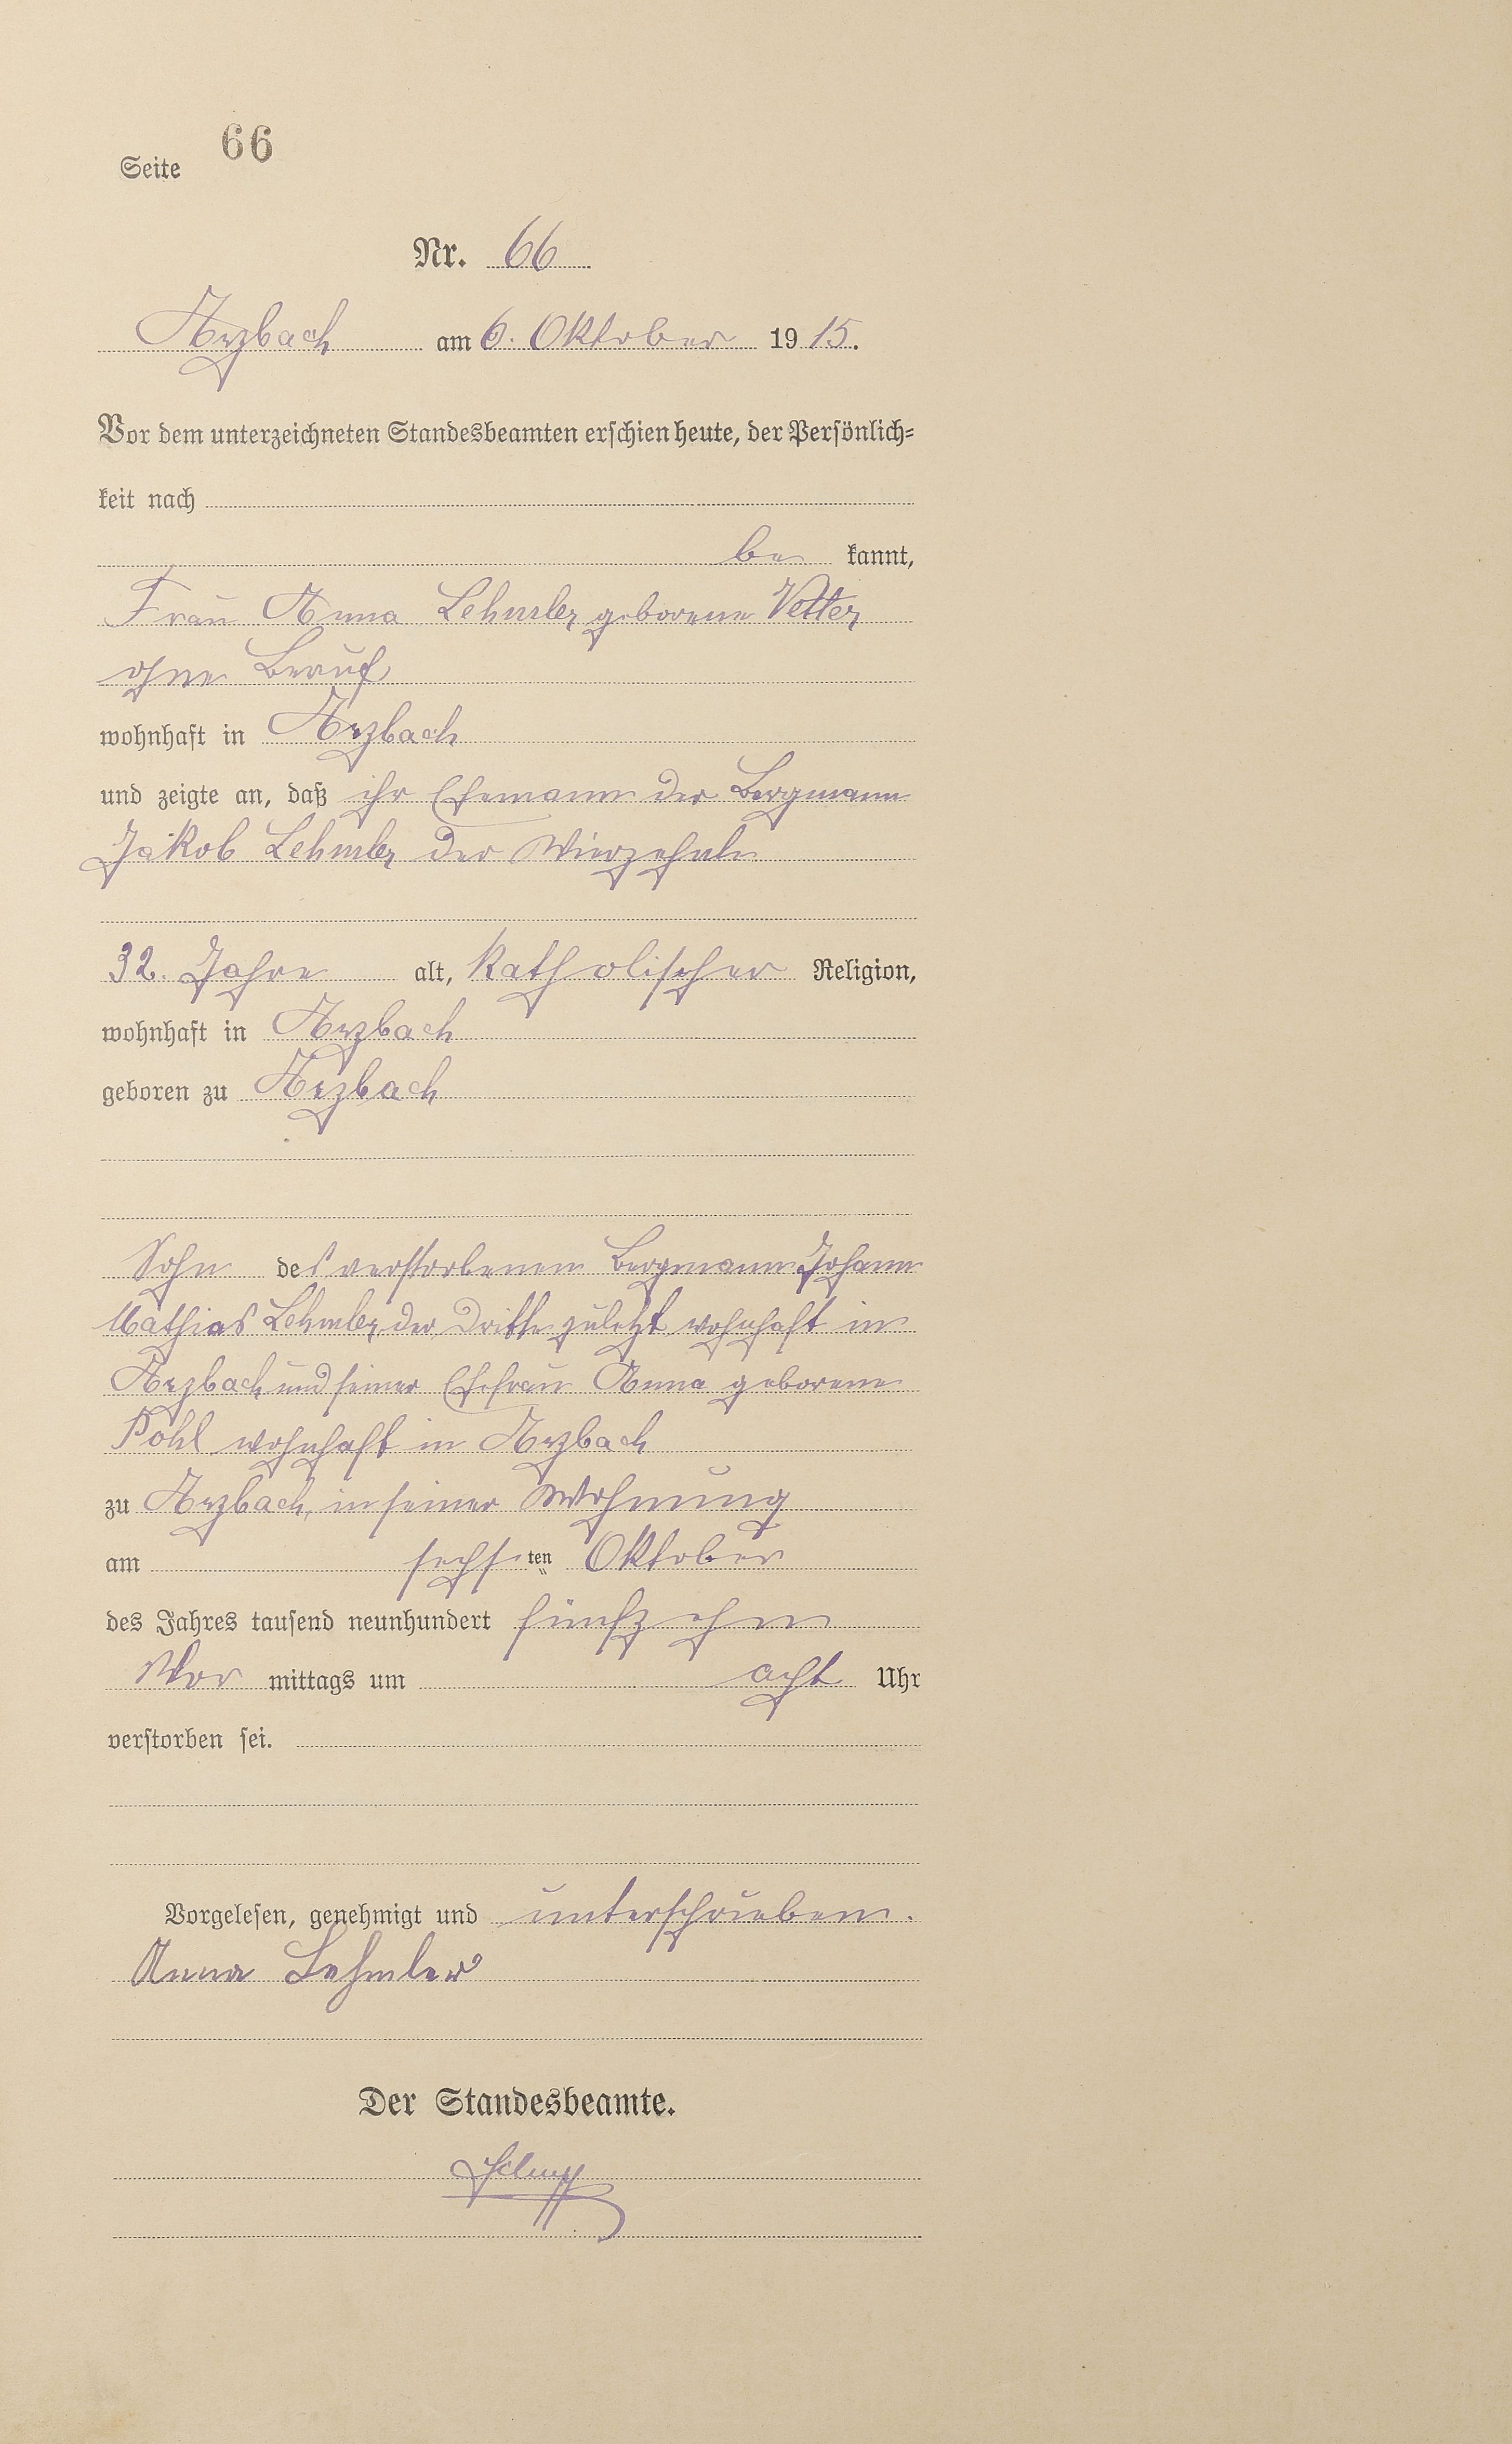 Seite 66
Nr. 66
Arzbach am 6. Oktober 1915.
Vor dem unterzeichneten Standesbeamten erschien heute, der Persönlich-
keit nach
be kannt,
Frau Anna Lehmler geborene Vetter
ohne Beruf,
wohnhaft in Arzbach
und zeigte an, daß ihr Ehemann der Bergmann
Jakob Lehmler der Vierzehnte
32. Jahre alt, katholischer Religion,
wohnhaft in Arzbach
geboren zu Arzbach
Sohn des verstorbenen Bergmann Johann
Mathias Lehmler der Dritte zuletzt wohnhaft in
Arzbach und seiner Ehefrau Anna geborene
Pohl wohnhaft in Arzbach
zu Arzbach, in seiner Wohnung
am sechsten Oktober
des Jahres tausend neunhundert fünfzehn
Vor mittags um acht Uhr
verstorben sei.
Vorgelesen, genehmigt und unterschrieben.
Anna Lehmler
Der Standesbeamte.